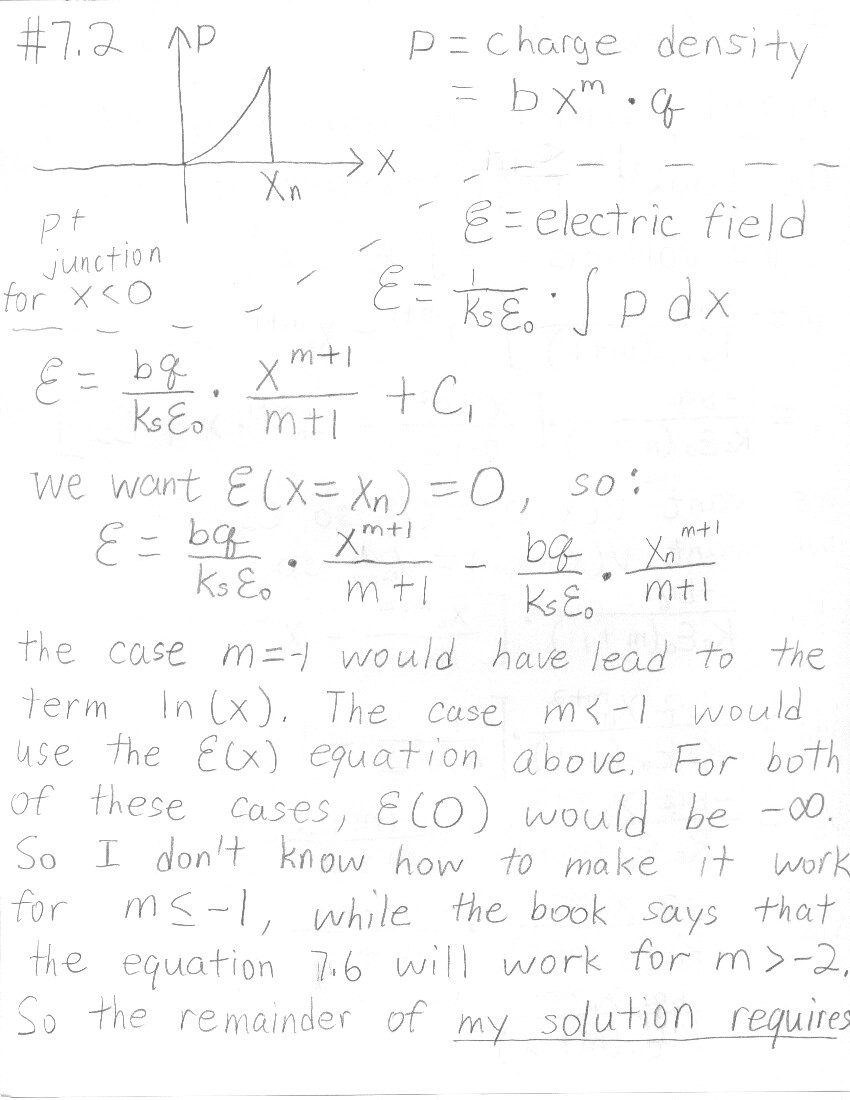 #7.2
ρ
x
xn
p+
junction
for x<0
ρ = charge density
= b x^m · q
ℰ = electric field
ℰ = 1/(Ksε₀) · ∫ ρ dx
ℰ = bq/(Ksε₀) · x^(m+1)/(m+1) + C₁
we want ℰ(x=xn) = 0, so:
ℰ = bq/(Ksε₀) · x^(m+1)/(m+1) − bq/(Ksε₀) · xn^(m+1)/(m+1)
the case m=-1 would have lead to the
term ln(x). The case m<-1 would
use the ℰ(x) equation above. For both
of these cases, ℰ(0) would be -∞.
So I don't know how to make it work
for m≤-1, while the book says that
the equation 7.6 will work for m>-2.
So the remainder of my solution requires